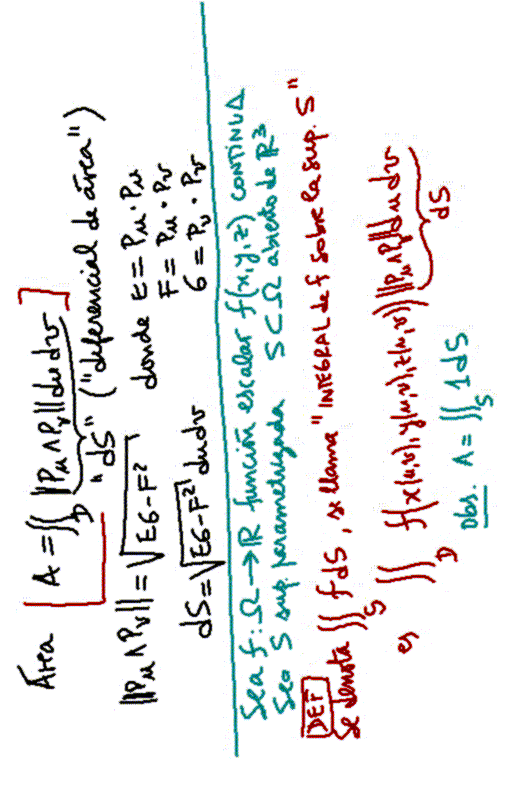 Área A = ∬_D ||P_u ∧ P_v|| du dv
"dS" ("diferencial de área")
||P_u ∧ P_v|| = √(EG-F²) donde E = P_u · P_u
F = P_u · P_v
dS = √(EG-F²) du dv G = P_v · P_v
Sea f: Ω → ℝ función escalar f(x,y,z) CONTINUA
Sea S sup. parametrizada S ⊂ Ω abierto de ℝ³
DEF
Se denota ∬_S f dS, se llama "INTEGRAL de f sobre la sup. S"
es ∬_D f(x(u,v), y(u,v), z(u,v)) ||P_u ∧ P_v|| du dv
dS
Obs. A = ∬_S 1 dS